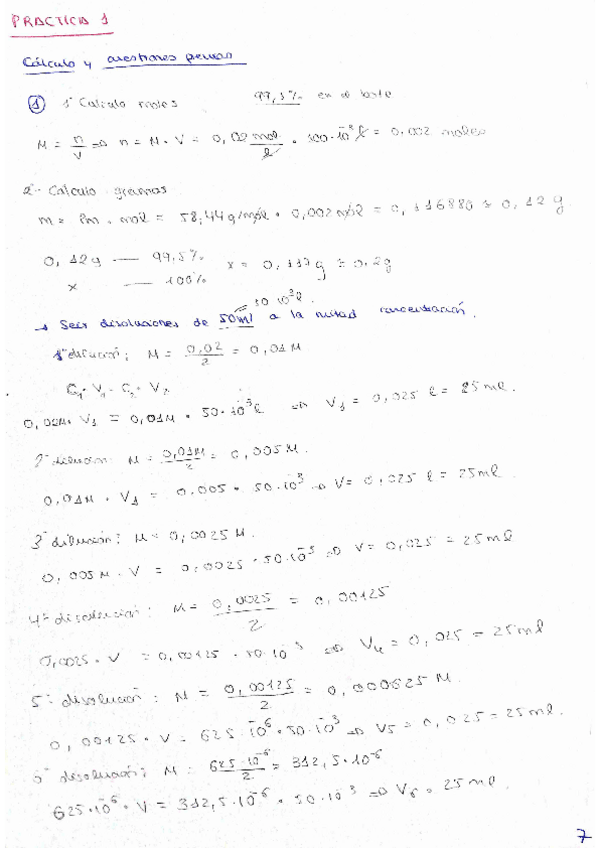 PRACTICA 1
Cálculo y cuestiones previas
① 1º Calculo moles 99,5% en el bote
M = n/V ⇒ n = M · V = 0,02 mol/l · 100·10⁻³ l = 0.002 moles
2º- Calculo gramos
m = Pm · mol = 58,44 g/mol · 0,002 mol = 0,116880 ≅ 0,12 g
0,12g — 99,5%
x — 100% x = 0,117g ≅ 0.2g
50·10⁻³ l.
→ Seis disoluciones de 50ml a la mitad concentración.
1ª dilución; M = 0,02/2 = 0,01 M
C₁·V₁ = C₂·V₂
0,02M· V₁ = 0,01M · 50·10⁻³ l ⇒ V₁ = 0,025 l = 25 ml.
2ª dilución: M = 0,01M/2 = 0,005 M.
0,01M · V₁ = 0.005 · 50·10⁻³ ⇒ V = 0,025 l = 25ml
3ª dilución: M = 0,0025 M.
0,005 M · V = 0,0025 · 50·10⁻³ ⇒ V = 0,025 = 25ml
4ª disolución: M = 0,0025/2 = 0,00125
0,0025 · V = 0,00125 · 50·10⁻³ ⇒ V₄ = 0,025 = 25ml
5ª disolución: M = 0,00125/2 = 0,000625 M.
0,00125 · V = 625·10⁻⁶ · 50·10⁻³ ⇒ V5 = 0,025 = 25ml.
6ª disolución; M = 625·10⁻⁶/2 = 312,5·10⁻⁶
625·10⁻⁶ · V = 312,5·10⁻⁶ · 50·10⁻³ ⇒ V₆ = 25 ml.
7